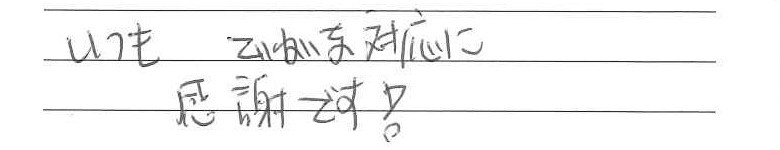 いつも ていねいな対応に
感謝です!